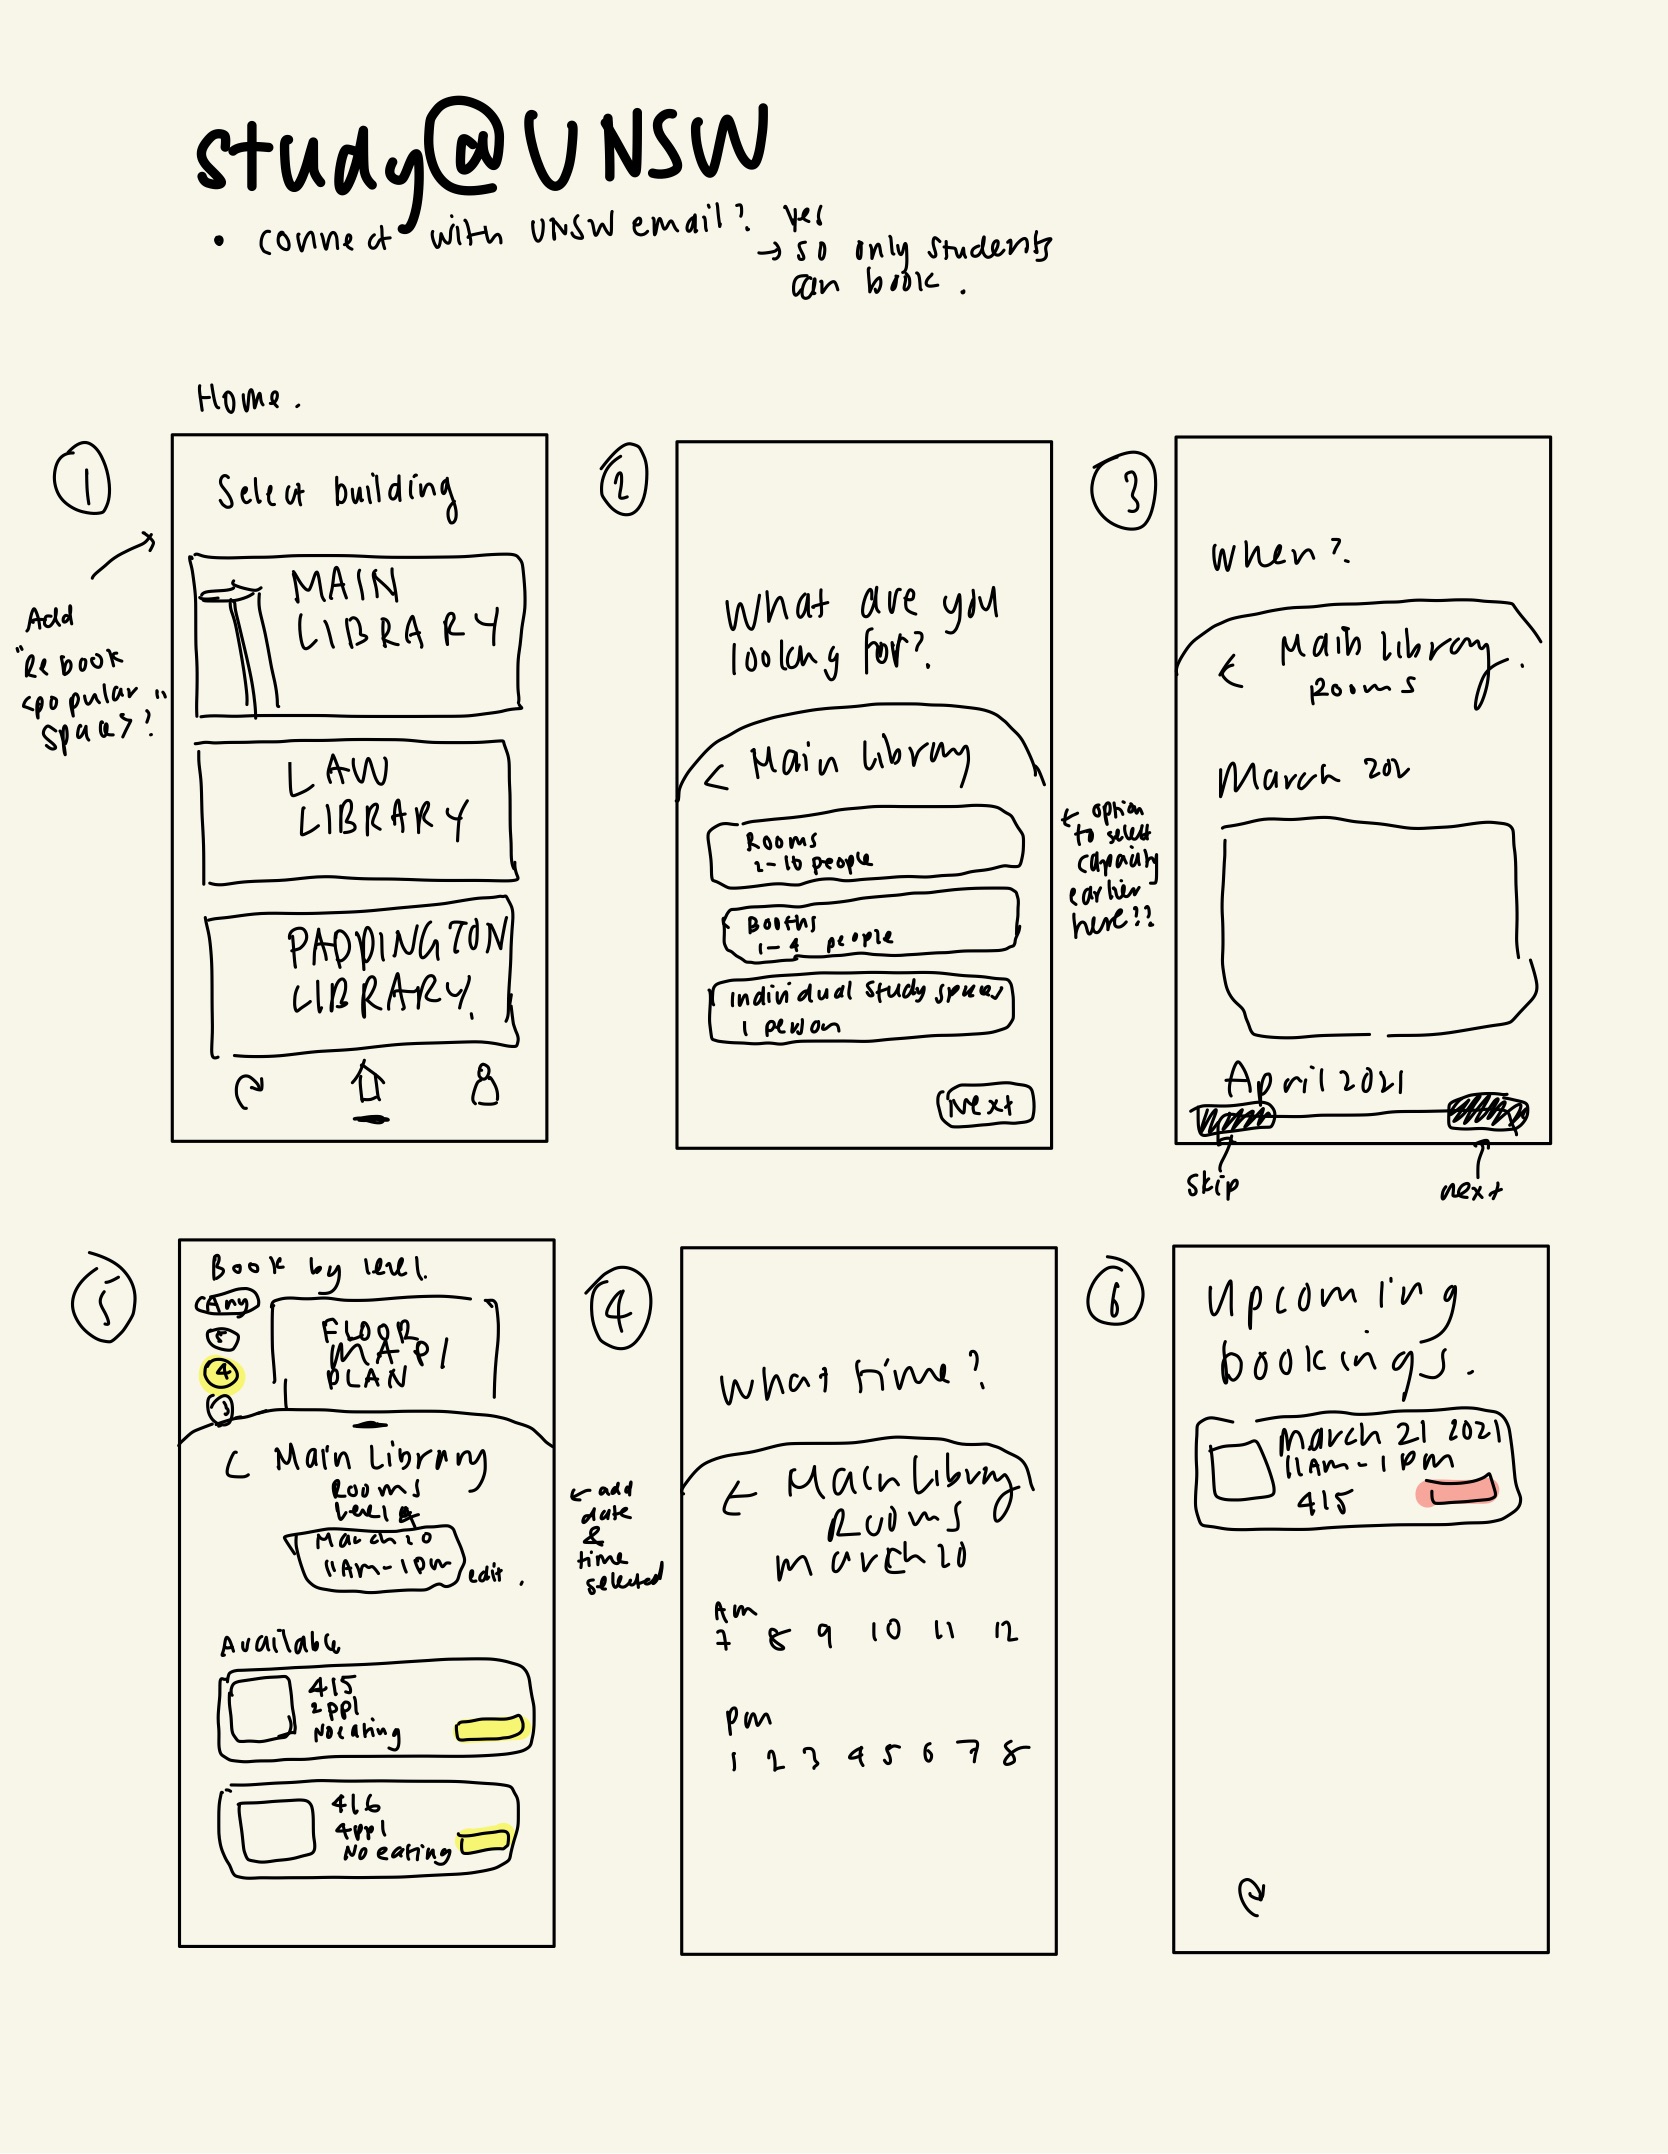 study@UNSW
• connect with UNSW email? yes
→ so only students
can book.
Home.
1
Select building
MAIN
LIBRARY
LAW
LIBRARY
PADDINGTON
LIBRARY.
Add
"Rebook
<popular
spaces>"?
2
What are you
looking for?
< Main Library
Rooms
2-10 people
Booths
1-4 people
Individual study spaces
1 person
Next
← option
to select
capacity
earlier
here??
3
When?
← Main Library.
Rooms
March 202
April 2021
skip
next
5
Book by level.
Any
5
4
3
FLOOR
MAP/
PLAN
< Main Library
Rooms
Level 4
March 20
11AM-1pm
edit.
Available
415
2ppl
No eating
416
4ppl
No eating
← add
date
&
time
selected
4
What time?
← Main Library
Rooms
march 20
Am
7 8 9 10 11 12
pm
1 2 3 4 5 6 7 8
6
Upcoming
bookings.
March 21 2021
11AM-1pm
415